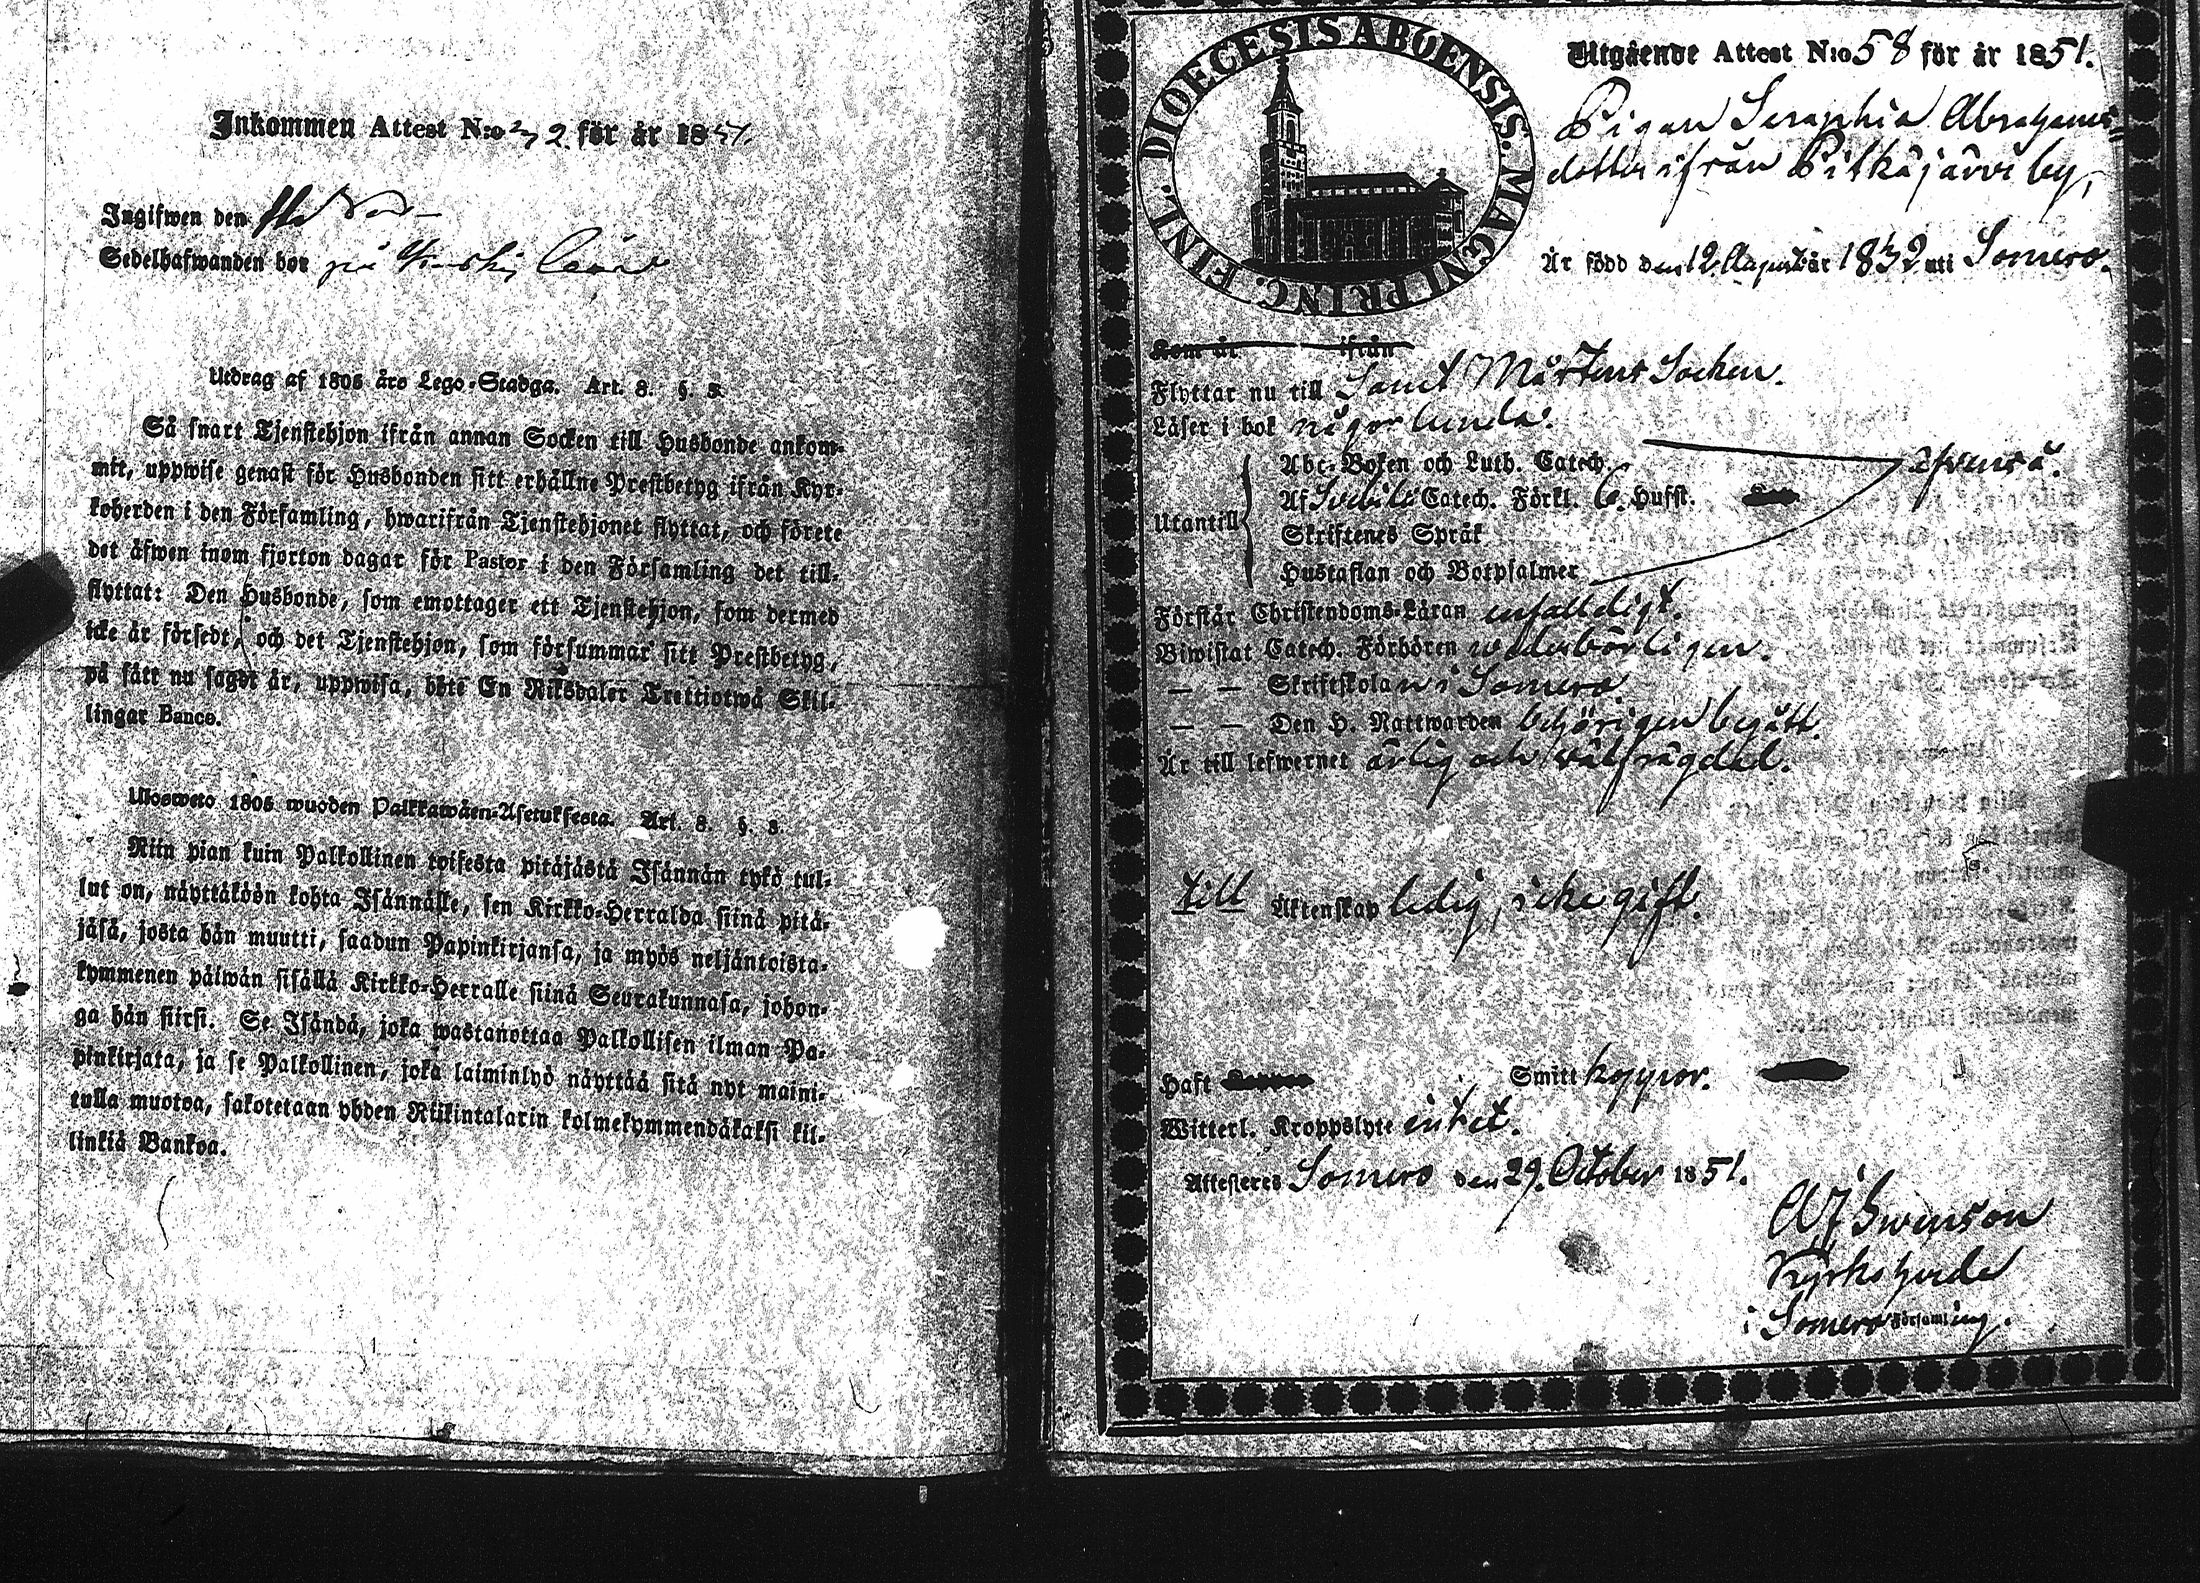 Inkommen Attest N:o 2 för år 1851.
Ingifwen den
Sedelhafwanden bor på
Utdrag af 1805 års Lego-Stadga. Art. 8. §. 3.
Så snart Tjenstehjon ifrån annan Socken till Husbonde ankom-
mit, uppwise genast för Husbonden sitt erhållne Prestbetyg ifrån Kyr-
koherden i den Församling, hwarifrån Tjenstehjonet flyttat, och förete
det äfwen inom fjorton dagar för Pastor i den Församling det till-
flyttat: Den Husbonde, som emottager ett Tjenstehjon, som dermed
icke är försedt, och det Tjenstehjon, som försummar sitt Prestbetyg,
på sätt nu sagdt är, uppwisa, böte En Riksdaler Trettiotwå Skil-
lingar Banco.
Ulosweto 1805 wuoden Palkkawäen-Asetuksesta. Art. 8. §. 3.
Niin pian kuin Palkollinen toisesta pitäjästä Isännän tykö tul-
lut on, näyttäköön kohta Isännälle, sen Kirkko-Herralda siinä pitä-
jäsä, josta hän muutti, saadun Papinkirjansa, ja myös neljäntoista-
kymmenen päiwän sisällä Kirkko-Herralle siinä Seurakunnasa, johon-
ga hän siirsi. Se Isändä, joka wastanottaa Palkollisen ilman Pa-
pinkirjata, ja se Palkollinen, joka laiminlyö näyttää sitä nyt maini-
tulla muotoa, sakotetaan yhden Riikintalarin kolmekymmendäkaksi kil-
linkiä Bankoa.
FINL. DIOECESIS ABOENSIS. MAGNI PRINC.
Utgående Attest N:o 58 för år 1851.
Pigan Seraphia Abrahams-
dotter ifrån Pitkäjärvi by,
Är född den 12 Augusti år 1832 uti Somero.
Kom år ifrån
Flyttar nu till Sanct Mårtens Socken.
Läser i bok någorlunda.
Utantill
Abc-Boken och Luth. Catech.
Af Catech. Förkl. Husft.
Skriftenes Språk
Hustaflan och Botpsalmer
Förstår Christendoms-Läran enfalldigt.
Biwistat Catech. Förhören wederbörligen.
— — Skriftskolan i Somero
— — Den H. Nattwarden behörigen begått.
Är till lefwernet ärlig och wälfrägdad.
till Äktenskap ledig, icke gift.
Haft Smitt koppor.
Witterl. Kroppslyte intet.
Attesteres Somero den 29. October 1851.
Swenson
Kyrkoherde
i Somero Församling.